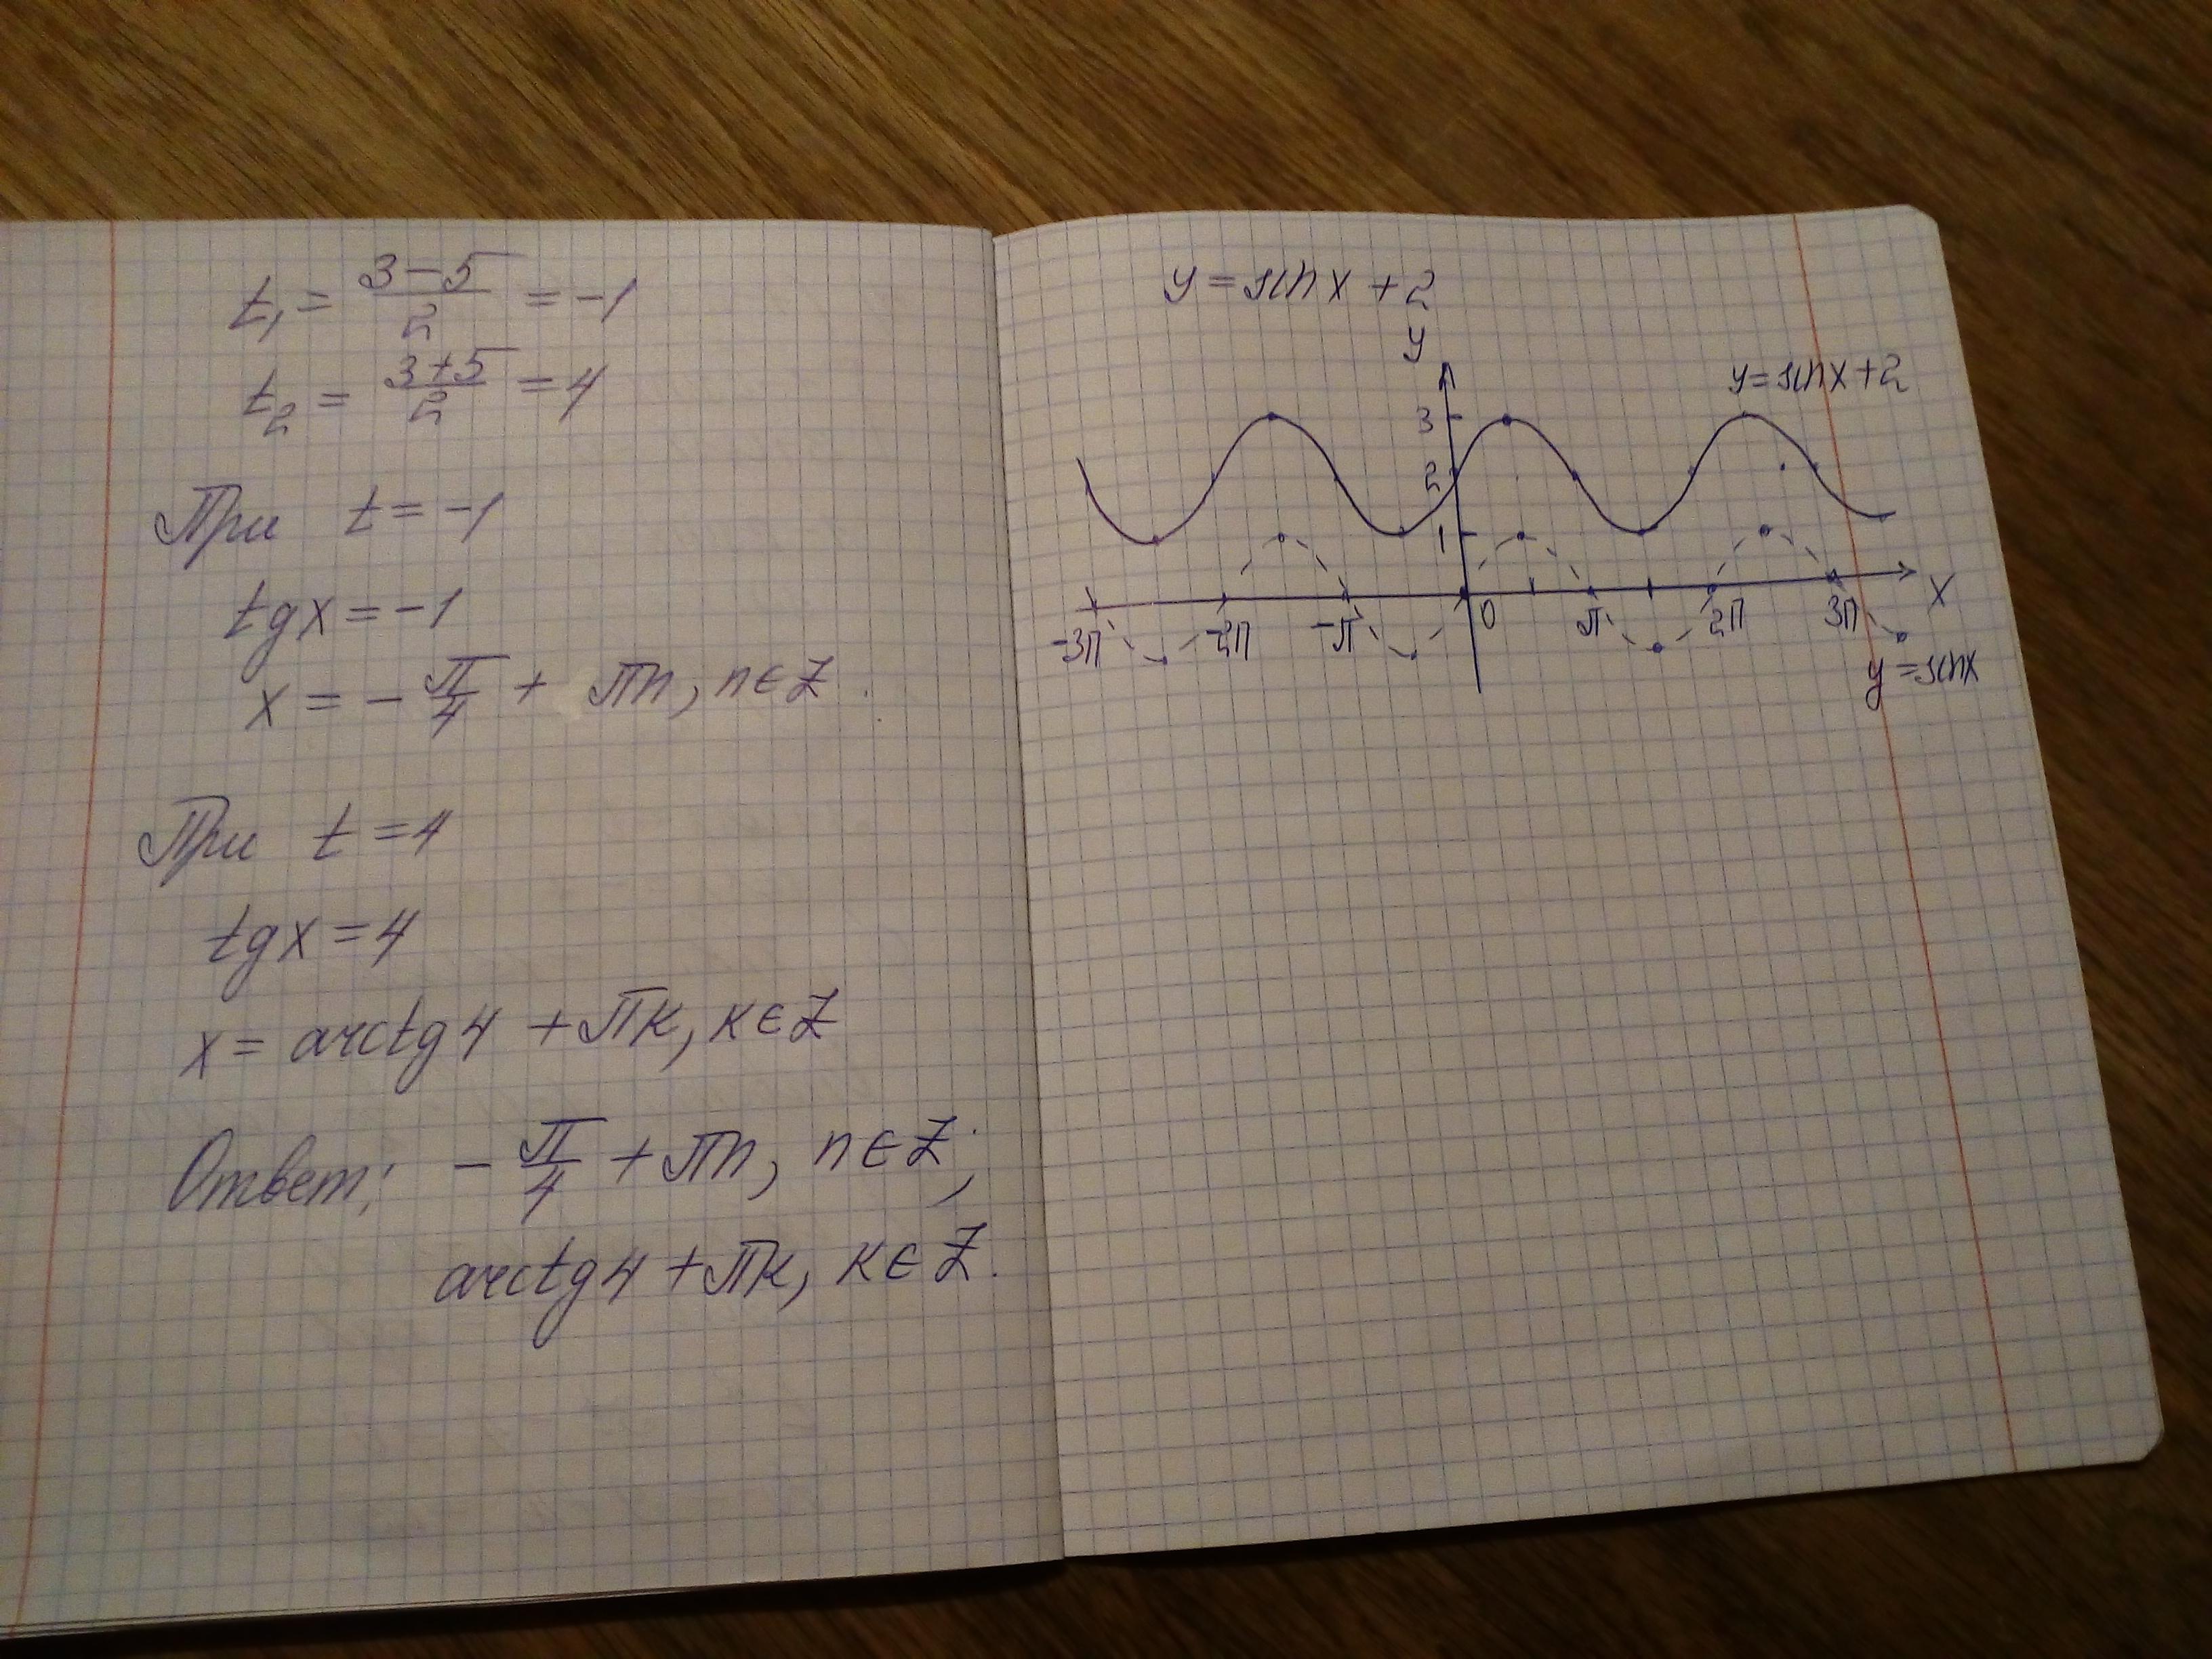 t₁ = (3−5)/2 = −1
t₂ = (3+5)/2 = 4
При t = −1
tgx = −1
x = −π/4 + πn, n∈Z.
При t = 4
tgx = 4
x = arctg4 + πк, к∈Z
Ответ: −π/4 + πn, n∈Z;
arctg4 + πк, к∈Z.
y = sinx + 2
y
y=sinx+2
3
2
1
-3π -2π -π 0 π 2π 3π x
y=sinx